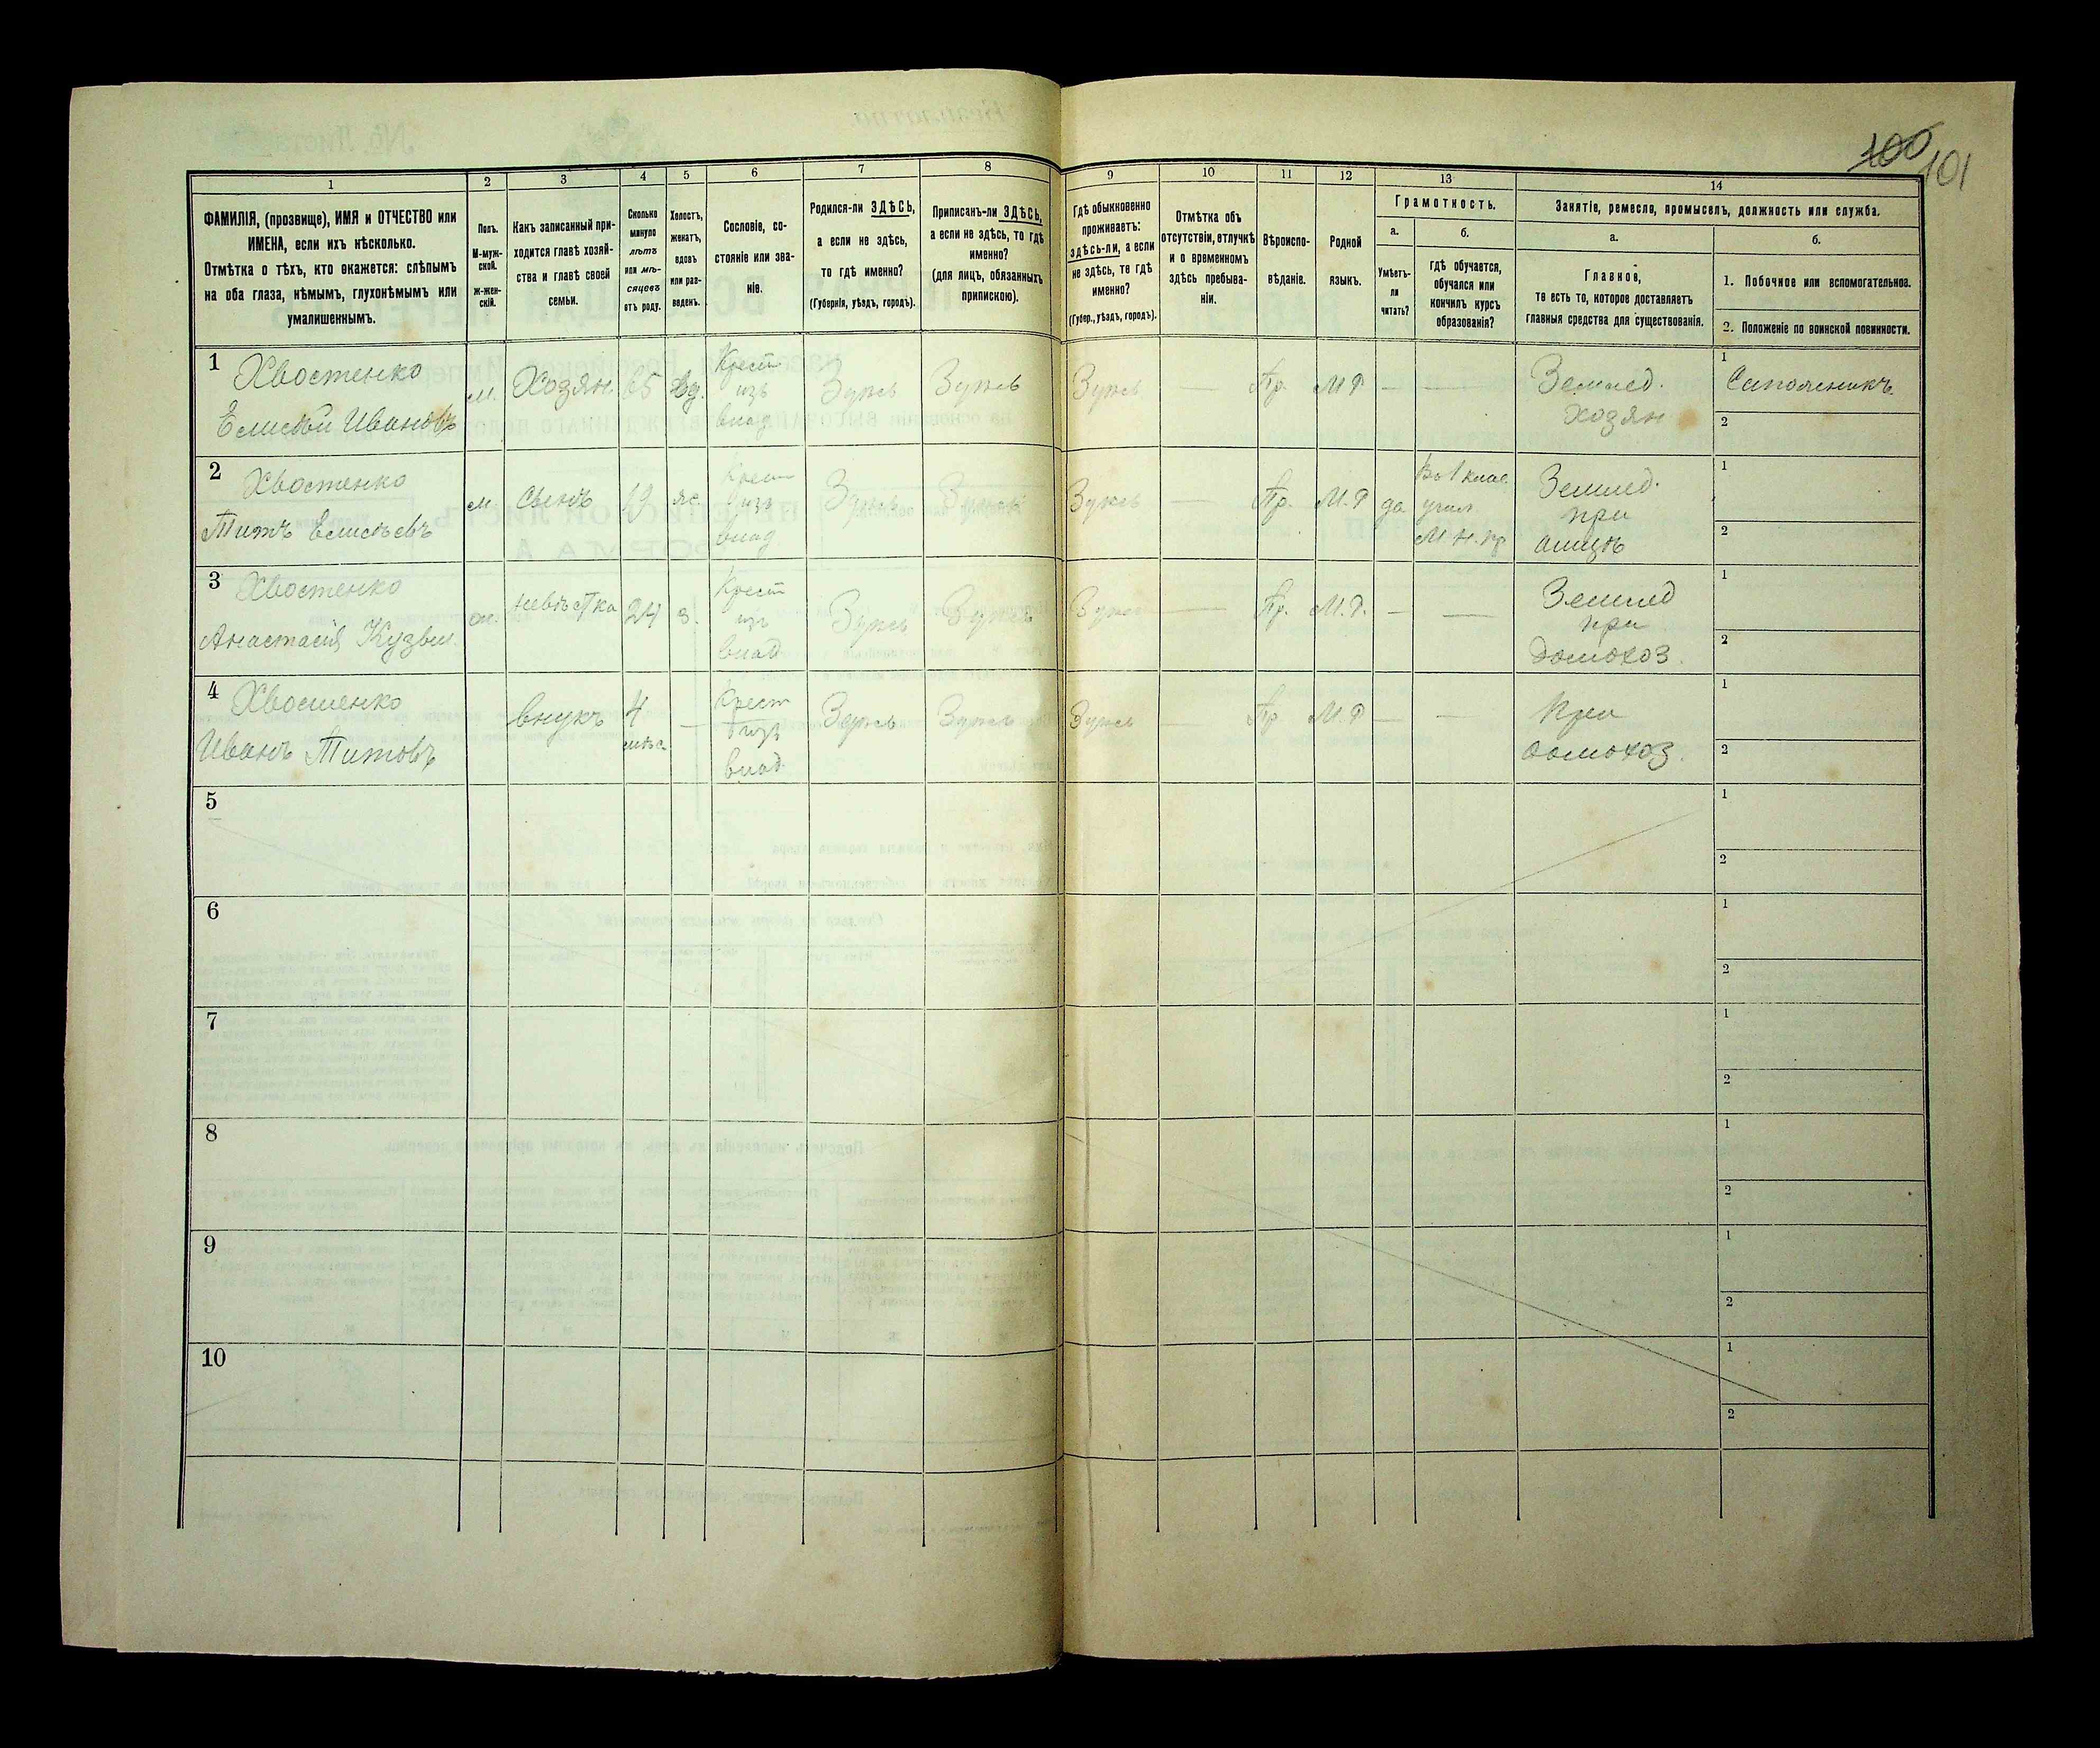 100
101
1
2
3
4
5
6
7
8
9
10
11
12
13
14
ФАМИЛІЯ, (прозвище), ИМЯ и ОТЧЕСТВО или
ИМЕНА, если ихъ нѣсколько.
Отмѣтка о тѣхъ, кто окажется: слѣпымъ
на оба глаза, нѣмымъ, глухонѣмымъ или
умалишеннымъ.
Полъ.
М-муж-
ской.
ж-жен-
скій.
Какъ записанный при-
ходится главѣ хозяй-
ства и главѣ своей
семьи.
Сколько
минуло
лѣтъ
или мѣ-
сяцевъ
отъ роду.
Холостъ,
женатъ,
вдовъ
или раз-
веденъ.
Сословіе, со-
стояніе или зва-
ніе.
Родился-ли ЗДѢСЬ,
а если не здѣсь,
то гдѣ именно?
(Губернія, уѣздъ, городъ).
Приписанъ-ли ЗДѢСЬ,
а если не здѣсь, то гдѣ
именно?
(для лицъ, обязанныхъ
припискою).
Гдѣ обыкновенно
проживаетъ:
здѣсь-ли, а если
не здѣсь, то гдѣ
именно?
(Губер., уѣздъ, городъ).
Отмѣтка объ
отсутствіи, отлучкѣ
и о временномъ
здѣсь пребыва-
ніи.
Вѣроиспо-
вѣданіе.
Родной
языкъ.
Грамотность.
а.
Умѣетъ-
ли
читать?
б.
гдѣ обучается,
обучался или
кончилъ курсъ
образованія?
Занятіе, ремесло, промыселъ, должность или служба.
а.
Главное,
то есть то, которое доставляетъ
главныя средства для существованія.
б.
1. Побочное или вспомогательное.
2. Положеніе по воинской повинности.
1
Хвостенко
Елисѣй Ивановъ
м.
Хозян.
65
вд.
Крест
изъ
влад
Здѣсь
Здѣсь
Здѣсь
—
Пр.
М Р
—
—
Землед.
Хозян
1
Сапожникъ.
2
2
Хвостенко
Титъ Елисѣевъ
м
Сынъ
19
Крест
изъ
влад
Здѣсь
Здѣсь
Здѣсь
—
Пр.
М. Р
да
учил
М. Н. пр
Землед.
при
отцѣ
1
2
3
Хвостенко
Анастасія Кузьм.
ж.
невѣстка
24
з.
Крест
изъ
влад
Здѣсь
Здѣсь
Здѣсь
—
Пр.
М. Р.
—
—
Землед
при
домохоз.
1
2
4
Хвостенко
Иванъ Титовъ
внукъ
4
мѣс.
—
Крест
изъ
влад.
Здѣсь
Здѣсь
Здѣсь
—
Пр
М. Р
—
—
При
домохоз.
1
2
5
1
2
6
1
2
7
1
2
8
1
2
9
1
2
10
1
2